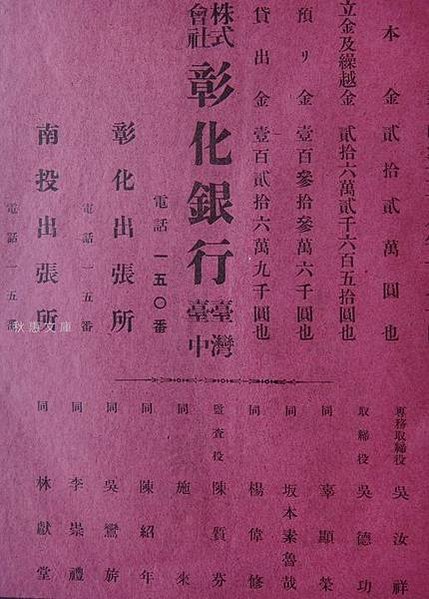 本金貳拾貳萬圓也
立金及繰越金 貳拾六萬貳千六百五拾圓也
預リ金 壹百參拾參萬六千圓也
貸出金 壹百貳拾六萬九千圓也
株式會社 彰化銀行 臺灣臺中
電話 一五〇番
彰化出張所
電話 一五番
南投出張所
電話 一五番
專務取締役 吳汝祥
取締役 吳德功
同 辜顯榮
同 坂本素魯哉
同 楊偉修
監査役 陳質芬
同 施來
同 陳紹年
同 吳鸞旂
同 李崇禮
同 林獻堂
秋惠文庫